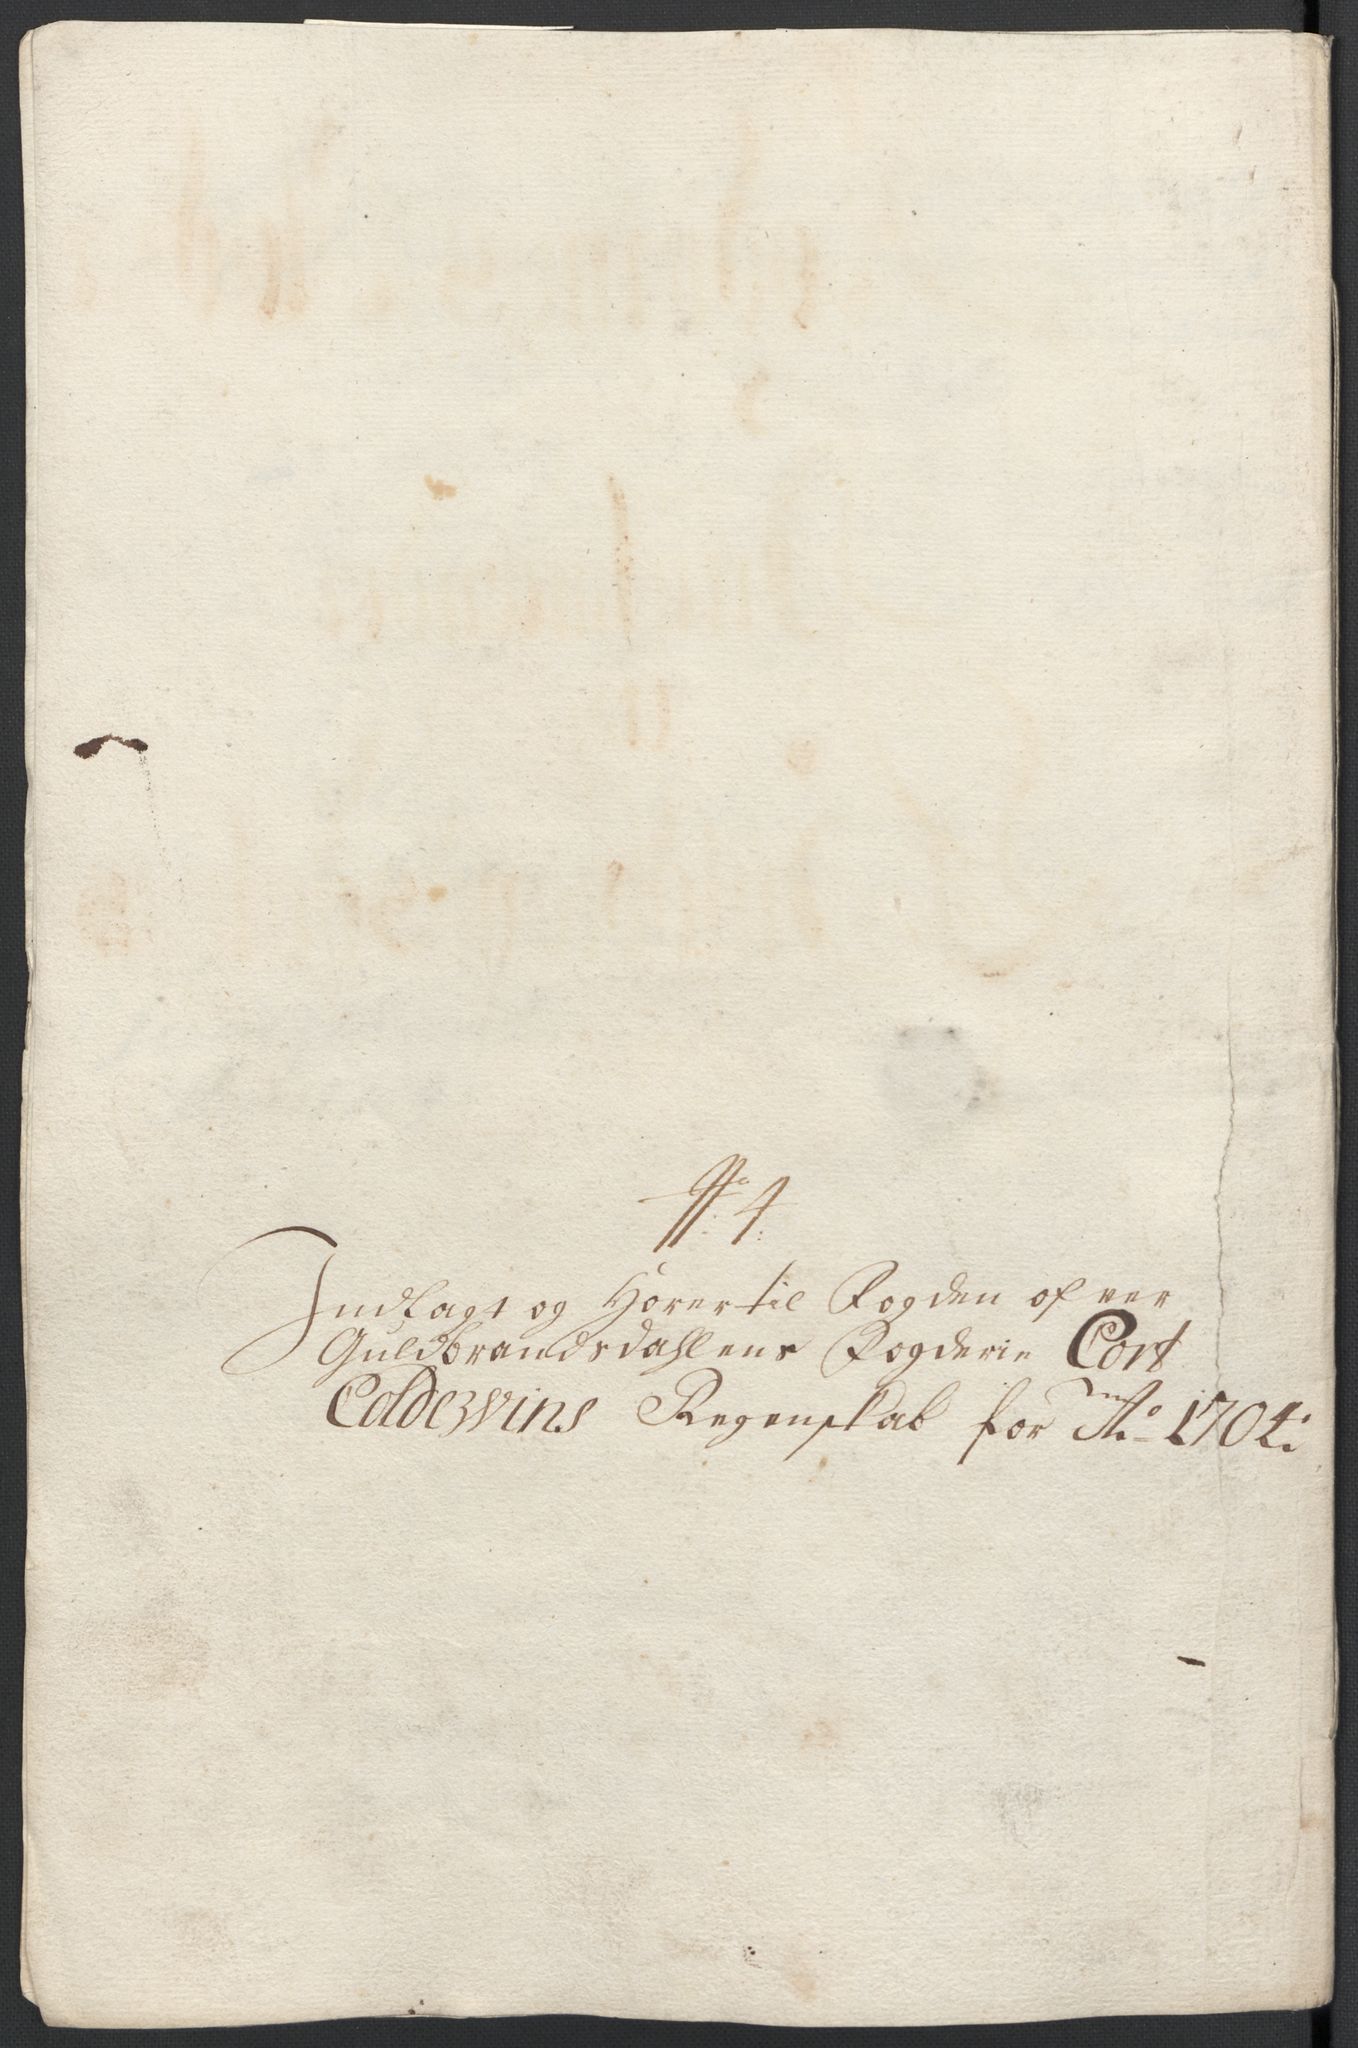 No. 4.
Indlagt og Hører til Fogden of ver
Guldbrandsdahlens Fogderie Cort
Coldewins Regenskab for Ao. 1704.